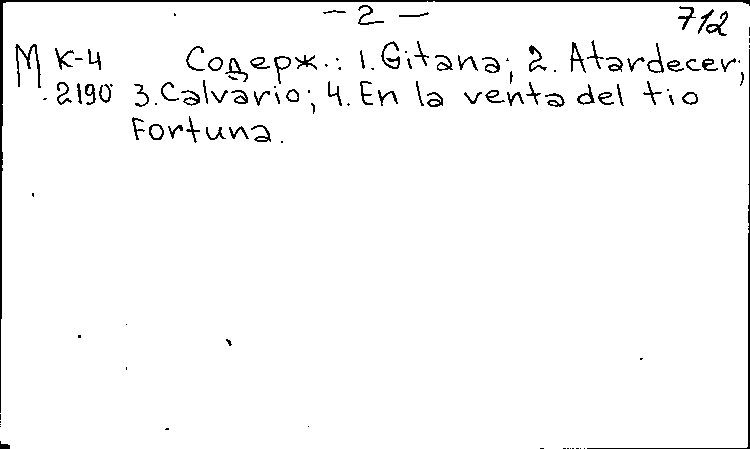 — 2 —
712
М К-4 Содерж.: 1. Gitana; 2. Atardecer;
2190 3. Calvario; 4. En la venta del tio
Fortuna.